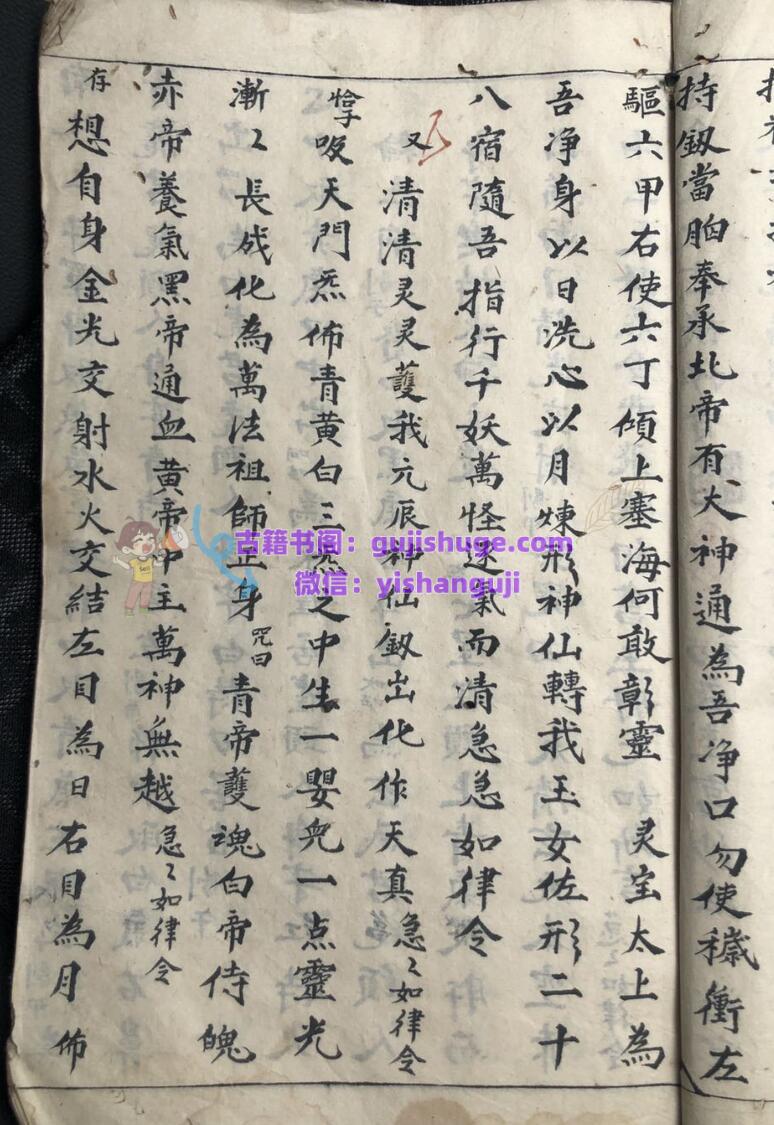 持釼當胸奉承北帝有大神通為吾净口勿使穢衝左
驅六甲右使六丁傾上塞海何敢彰靈 灵宝太上為
吾净身以日洗心以月煉形神仙轉我玉女佐形二十
八宿隨吾指行千妖萬怪逐氣而清急急如律令
又 清清灵灵護我元辰神仙釼出化作天真急〻如律令
吸天門炁佈青黃白三炁之中生一嬰児一点靈光
漸〻長成化為萬法祖師正身 咒曰 青帝護魂白帝侍魄
赤帝養氣黑帝通血黃帝中主萬神無越急〻如律令
存想自身金光交射水火交結左目為日右目為月佈
古籍书阁：gujishuge.com
微信：yishanguji